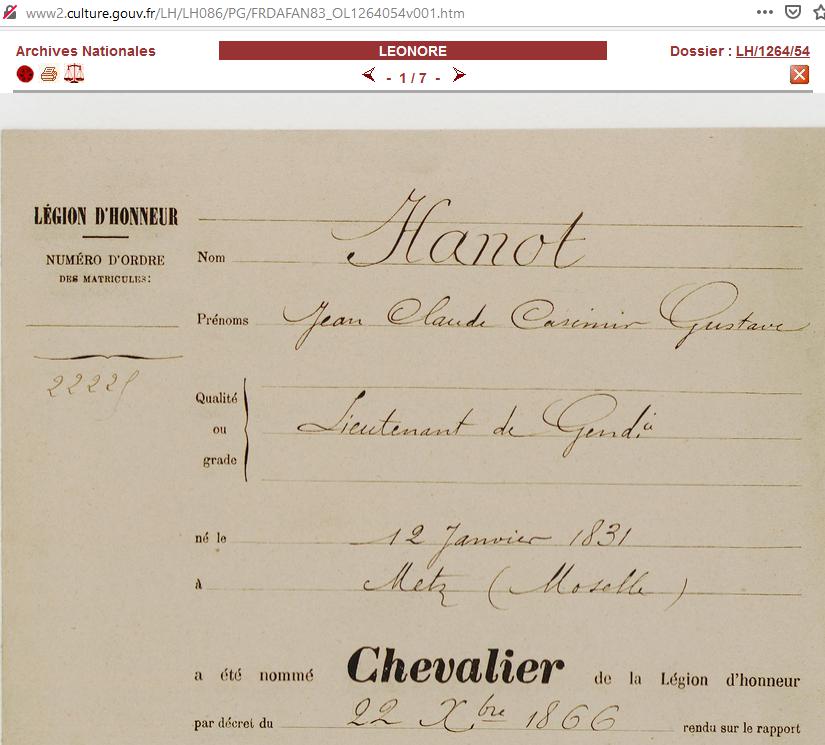 www2.culture.gouv.fr/LH/LH086/PG/FRDAFAN83_OL1264054v001.htm
Archives Nationales
LEONORE
Dossier : LH/1264/54
- 1 / 7 -
LÉGION D'HONNEUR
NUMÉRO D'ORDRE
DES MATRICULES:
22225
Nom Hanot
Prénoms Jean Claude Casimir Gustave
Qualité
ou
grade
Lieutenant de Gendie
né le 12 Janvier 1831
à Metz (Moselle)
a été nommé Chevalier de la Légion d'honneur
par décret du 22 Xbre 1866 rendu sur le rapport